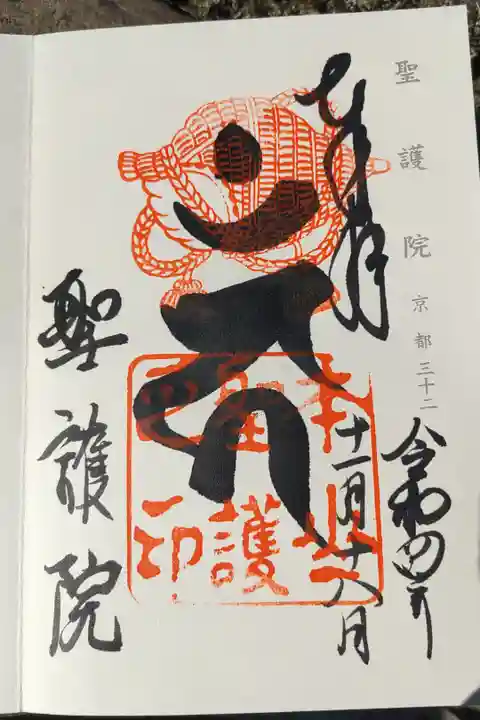 聖護院 京都 三十二
奉拝
令和四年
十一月十八日
本山
聖護
院印
聖護院